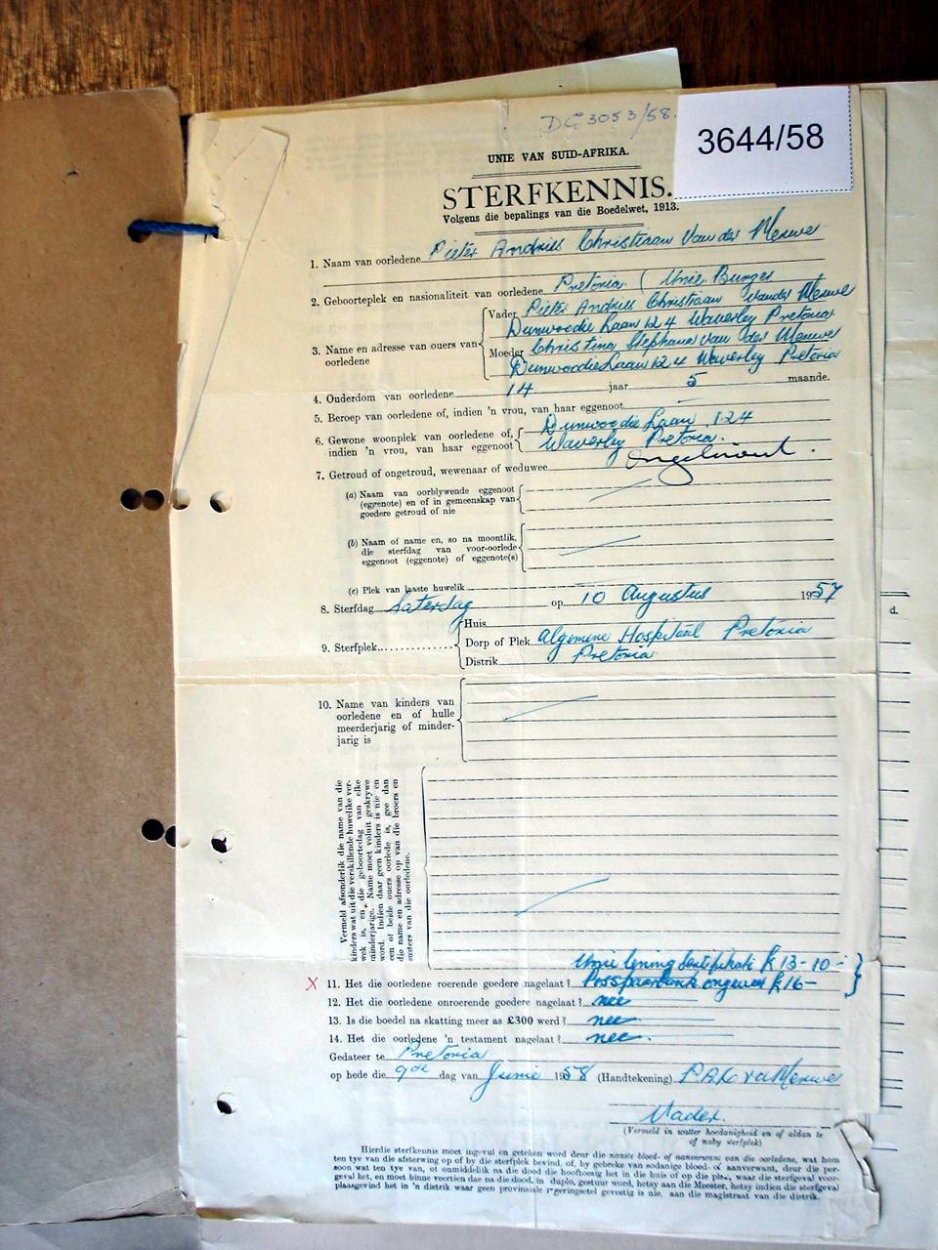 DC 3053/58.
3644/58
UNIE VAN SUID-AFRIKA.
STERFKENNIS.
Volgens die bepalings van die Boedelwet, 1913.
1. Naam van oorledene Pieter Andries Christiaan Van der Merwe
2. Geboorteplek en nasionaliteit van oorledene Pretoria (Unie Burger
3. Name en adresse van ouers van oorledene
Vader Pieter Andries Christiaan van der Merwe
Dunwoodie Laan 124 Waverley Pretoria
Moeder Christina Stephana van der Merwe
Dunwoodie Laan 124 Waverley Pretoria
4. Ouderdom van oorledene 14 jaar 5 maande.
5. Beroep van oorledene of, indien 'n vrou, van haar eggenoot —
6. Gewone woonplek van oorledene of, Dunwoodie Laan 124
indien 'n vrou, van haar eggenoot Waverley Pretoria.
7. Getroud of ongetroud, wewenaar of weduwee Ongetroud.
(a) Naam van oorblywende eggenoot
(egrenote) en of in gemeenskap van
goedere getroud of nie
(b) Naam of name en, so na moontlik,
die sterfdag van voor-oorlede
eggenoot (eggenote) of eggenote(s)
(c) Plek van laaste huwelik
8. Sterfdag Saterdag op 10 Augustus 1957
9. Sterfplek
Huis
Dorp of Plek Algemene Hospitaal Pretoria
Distrik Pretoria
10. Name van kinders van
oorledene en of hulle
meerderjarig of minder-
jarig is
Vermeld afsonderlik die name van die
kinders wat uit die verskillende huwelike ver-
wek is, en die geboortedag van elke
minderjarige. Name moet voluit geskrywe
word. Indien daar geen kinders is nie en
een of beide ouers oorlede is, gee dan
die name en adresse op van die broers en
susters van die oorledene.
Unie lening Sertifikate £13-10-
X 11. Het die oorledene roerende goedere nagelaat? Posspaarbank ongeveer £16-
12. Het die oorledene onroerende goedere nagelaat? nee
13. Is die boedel na skatting meer as £300 werd? nee
14. Het die oorledene 'n testament nagelaat? nee.
Gedateer te Pretoria
op hede die 9de dag van Junie 1958 (Handtekening) P.A.C. v d Merwe
Vader.
(Vermeld in watter hoedanigheid en of aldan te
of naby sterfplek)
Hierdie sterfkennis moet ingevul en geteken word deur die naaste bloed- of aanverwant van die oorledene, wat hom
ten tye van die afsterwing op of by die sterfplek bevind, of, by gebreke van sodanige bloed- of aanverwant, deur die per-
soon wat ten tye van, of onmiddelik na die dood die hooftoesig het in die huis of op die plek, waar die sterfgeval voor-
geval het, en moet binne veertien dae na die dood, in duplo, gestuur word, hetsy aan die Meester, hetsy indien die sterfgeval
plaasgevind het in 'n distrik waar geen provinsiale regeringsetel gevestig is nie, aan die magistraat van die distrik.
d.